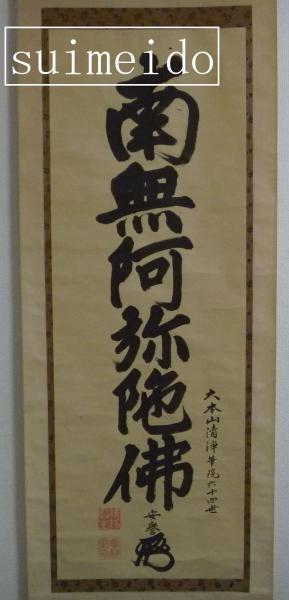 suimeido
南無阿弥陀佛
大本山清浄華院六十四世
安誉